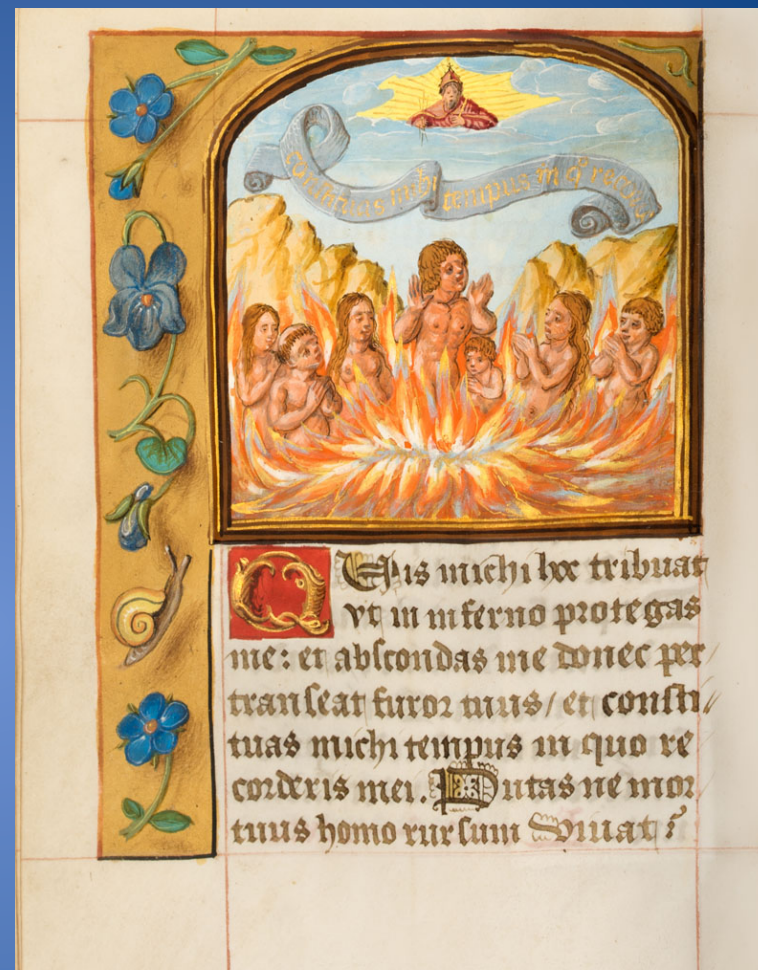 constituas mihi tempus in q recor
Quis michi hoc tribuat
vt in inferno protegas
me: et abscondas me donec per
transeat furor tuus/ et consti
tuas michi tempus in quo re
corderis mei. Putas ne mor
tuus homo rursum viuat?